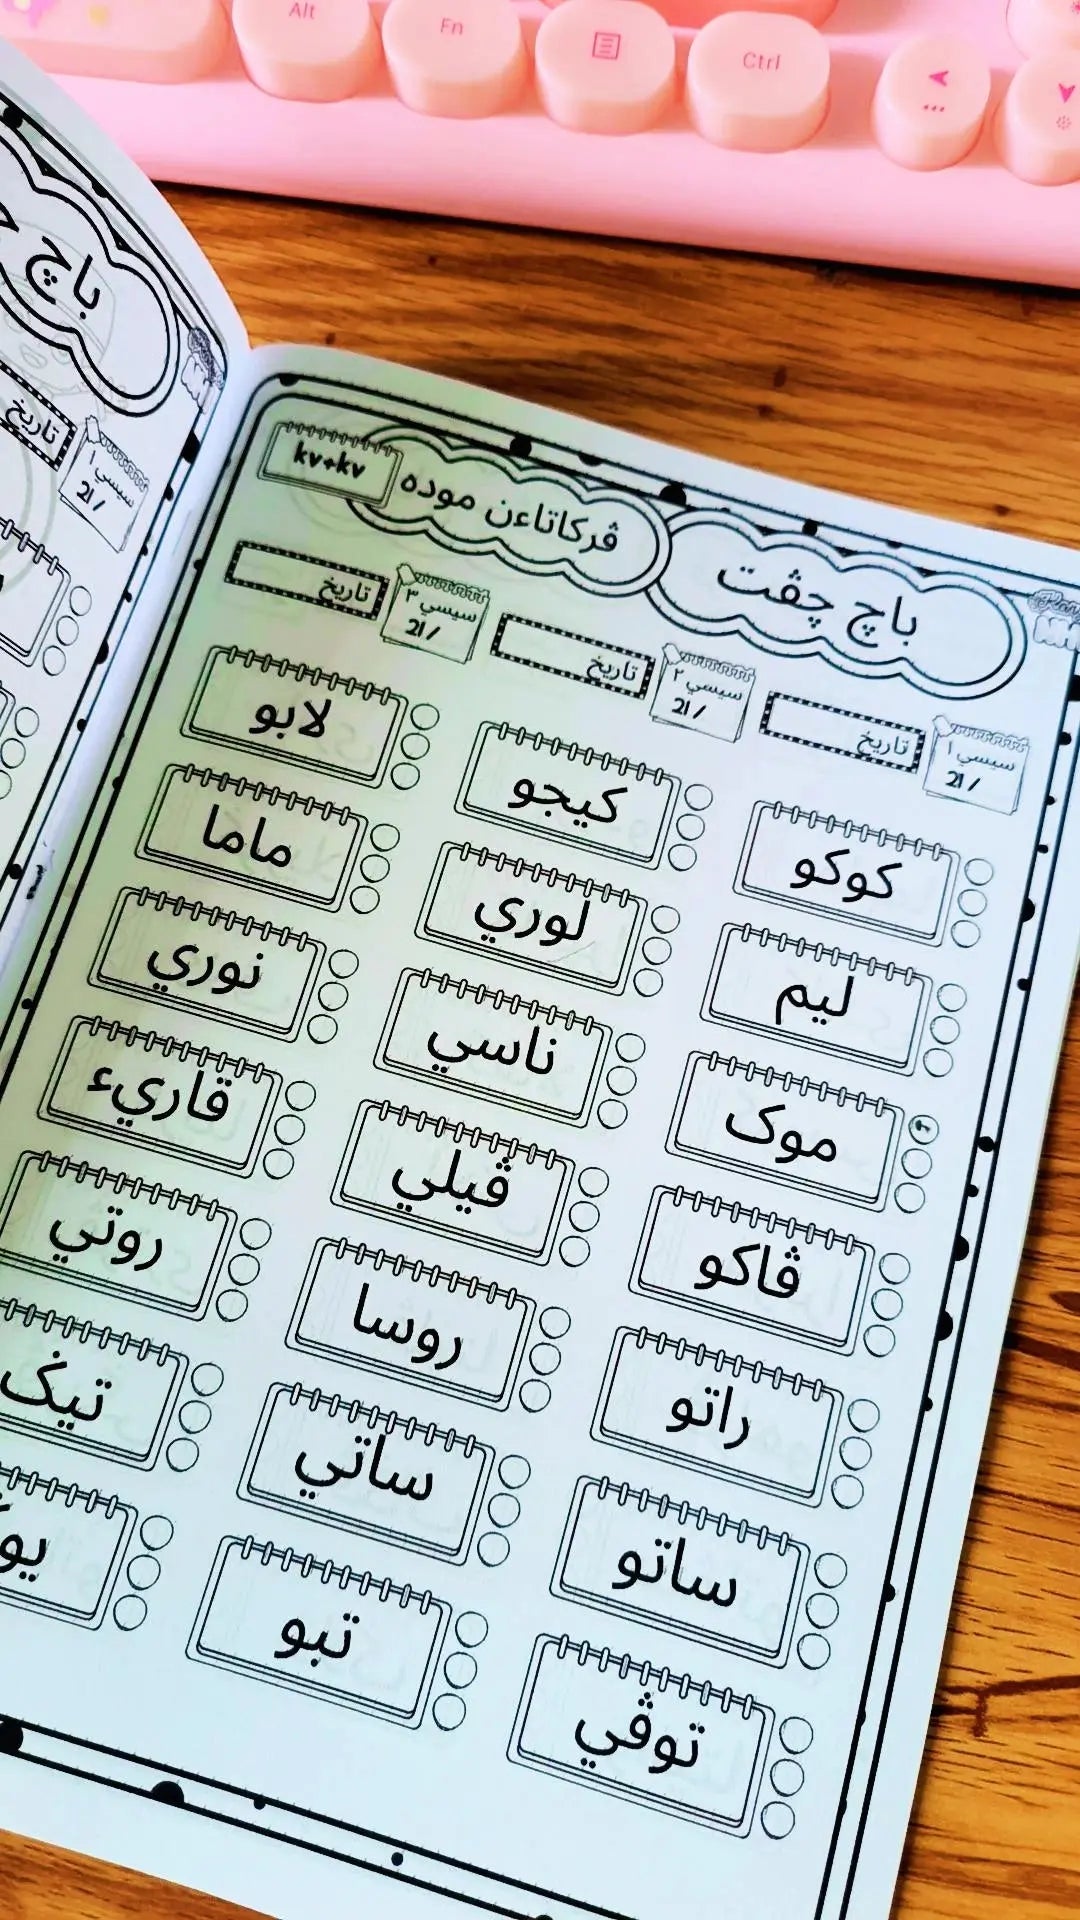 Alt
Fn
Ctrl
باچ
تاريخ
سيسي ١
21 /
باچ چڤت
ڤركاتاءن موده
kv+kv
سيسي ١
21 /
تاريخ
سيسي ٢
21 /
تاريخ
سيسي ٣
21 /
تاريخ
كوكو
كيجو
لابو
ليم
لوري
ماما
موک
ناسي
نوري
ڤاكو
ڤيلي
قاريء
راتو
روسا
روتي
ساتو
ساتي
تيݢ
توڤي
تبو